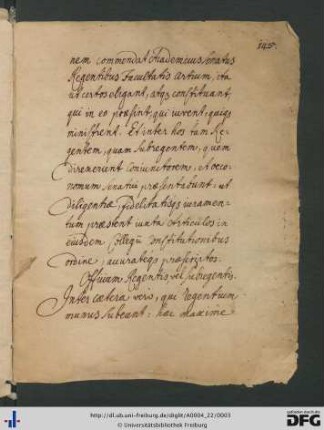 nem commendat Academicus senatus
Regentibus Facultatis Artium, ita
ut certos eligant, atqȝ constituant,
qui in eo præsint, qui iuvent, quiqȝ
ministrent. Et inter hos tàm Re-
gentem, quam Subregentem, quem
dixerunt Coniunctorem, et oeco-
nomum senatui præsentabunt: ut
diligentiæ, fidelitatisqȝ iuramen-
tum præstent iuxta Articulos in
eiusdem Collegii Institutionibus
ordine, accuratèqȝ præscriptos.
Officium Regentis vel subregentis.
Inter cætera verò, qui Regentium
munus subeunt: hæc maxime
http://dl.ub.uni-freiburg.de/diglit/A0004_22/0003
© Universitätsbibliothek Freiburg
gefördert durch die
DFG